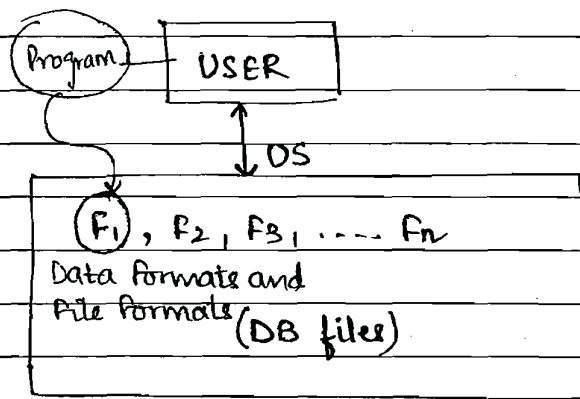 Program
USER
OS
F1, F2, F3, .... Fn
Data formats and
file formats (DB files)